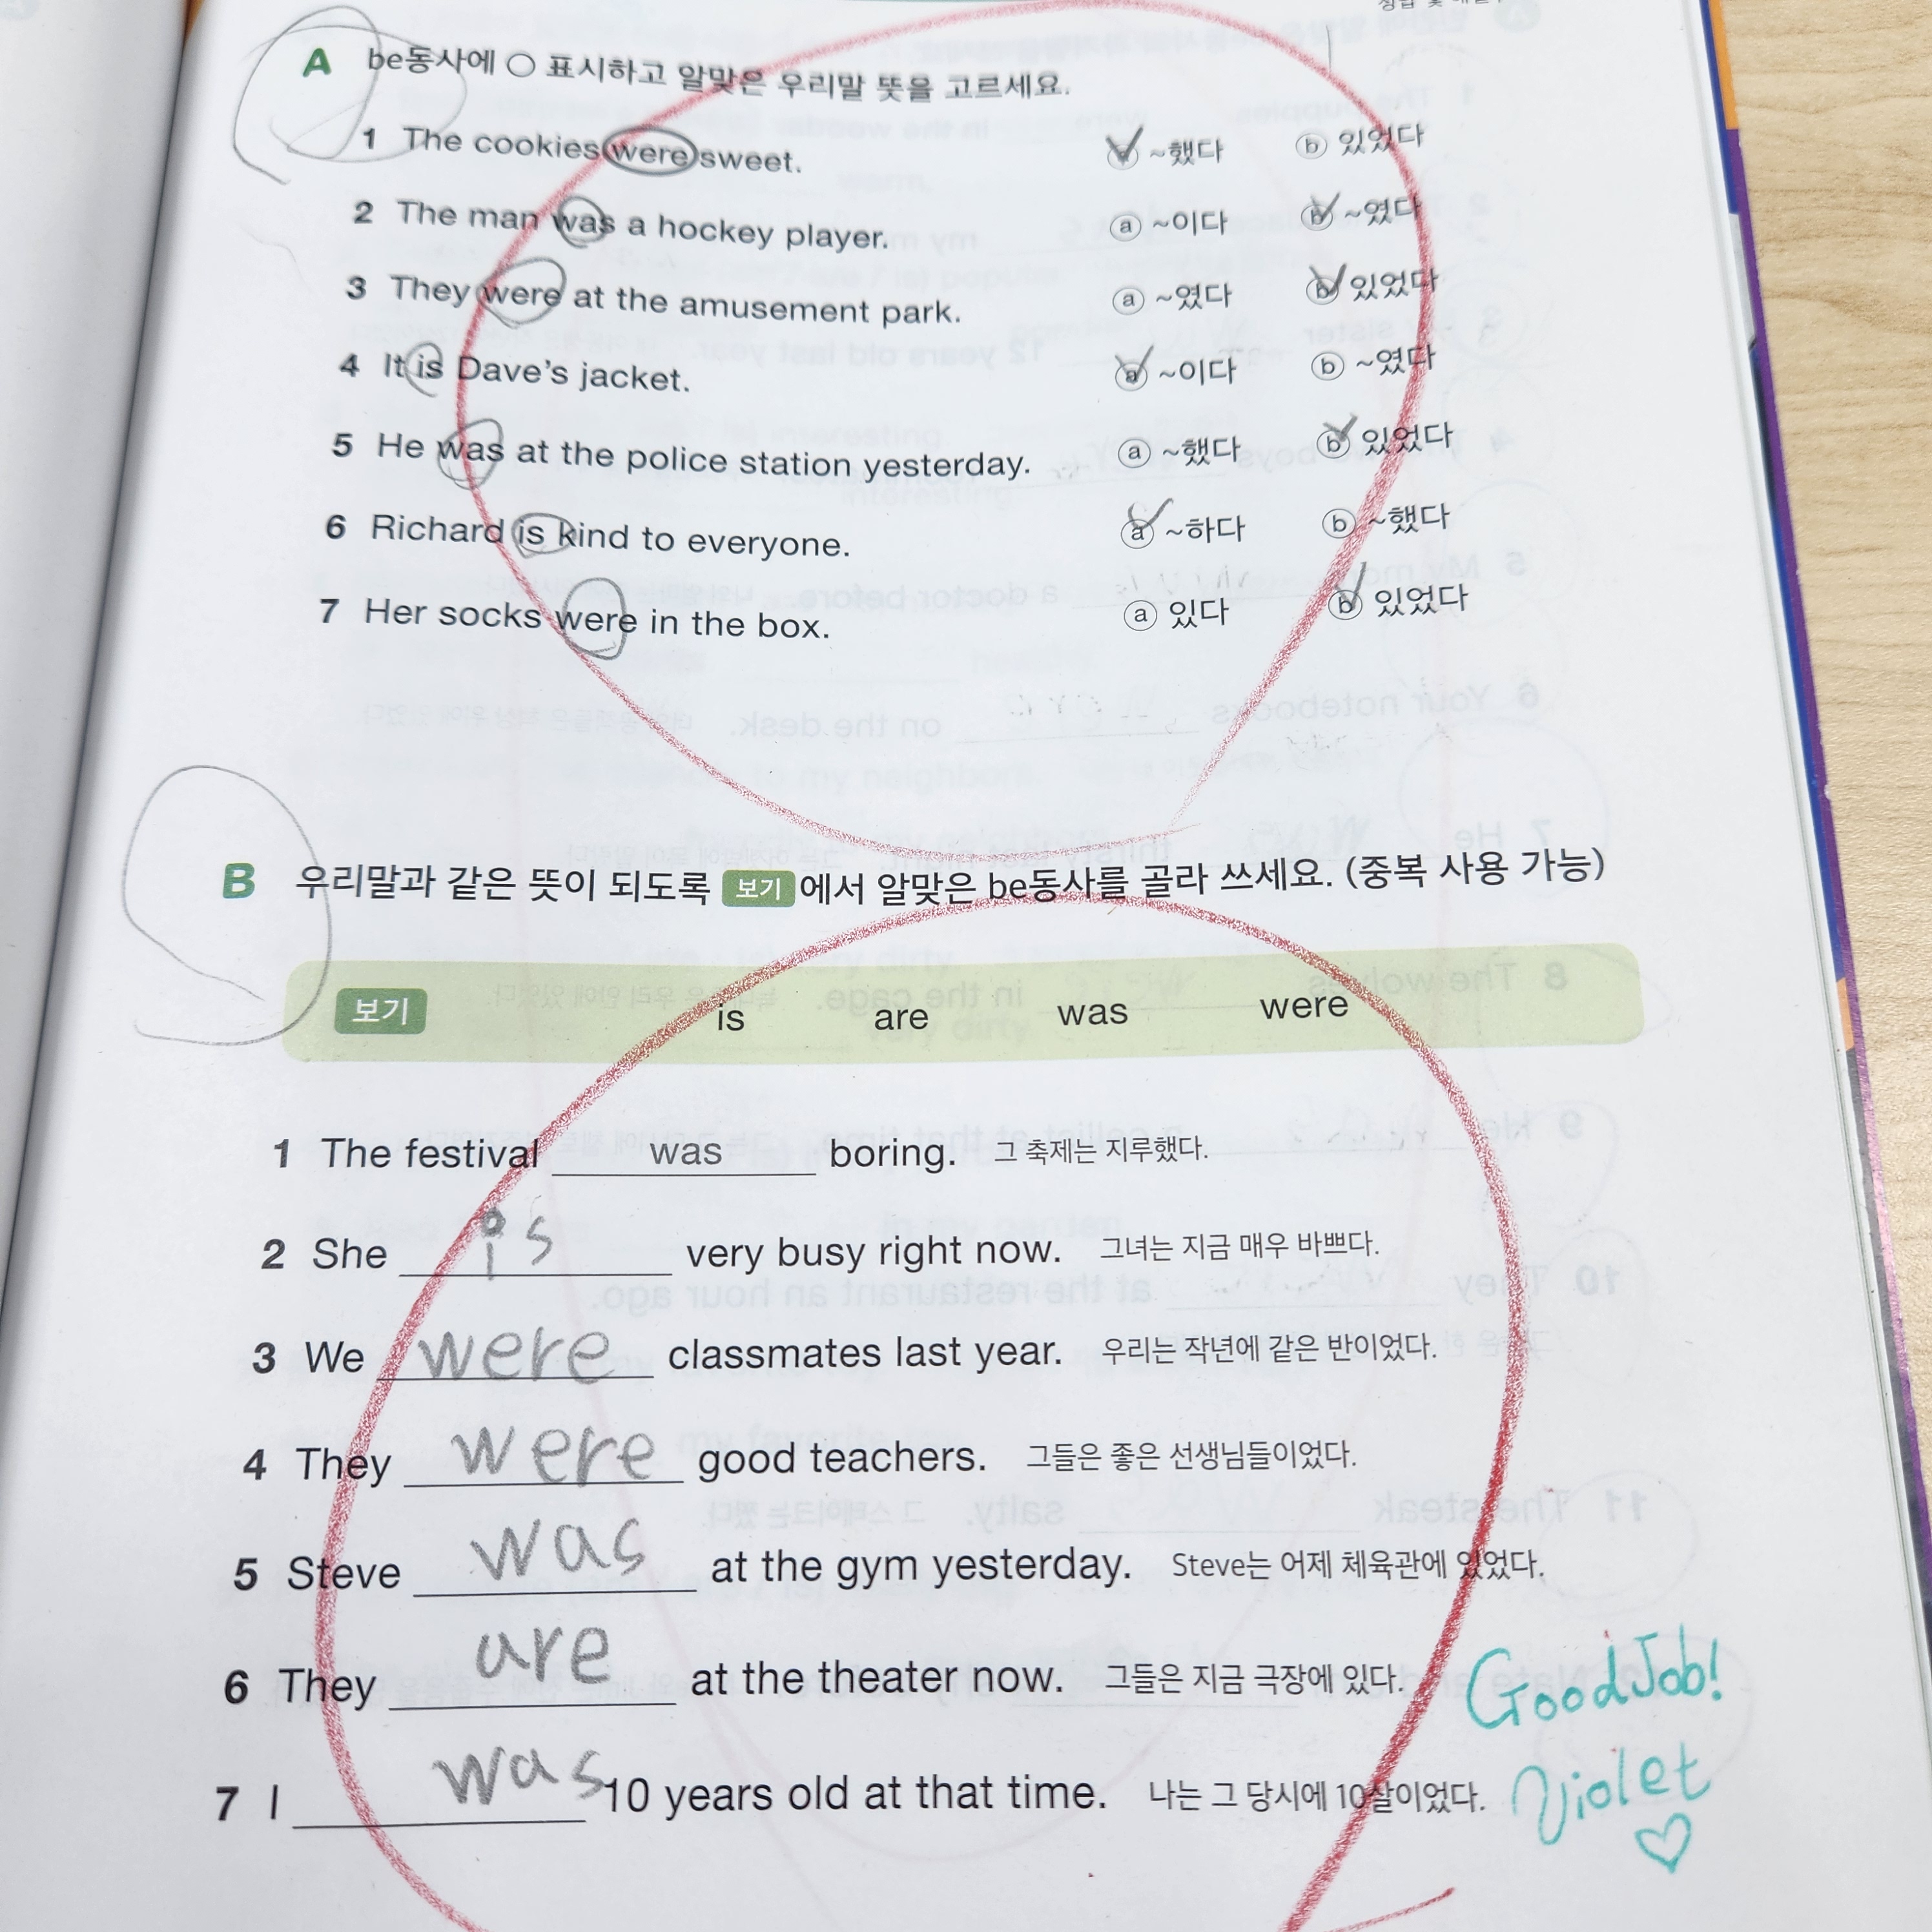 A be동사에 ○ 표시하고 알맞은 우리말 뜻을 고르세요.
1 The cookies were sweet. ⓐ ~했다 ⓑ 있었다
2 The man was a hockey player. ⓐ ~이다 ⓑ ~였다
3 They were at the amusement park. ⓐ ~였다 ⓑ 있었다
4 It is Dave's jacket. ⓐ ~이다 ⓑ ~였다
5 He was at the police station yesterday. ⓐ ~했다 ⓑ 있었다
6 Richard is kind to everyone. ⓐ ~하다 ⓑ ~했다
7 Her socks were in the box. ⓐ 있다 ⓑ 있었다
B 우리말과 같은 뜻이 되도록 보기 에서 알맞은 be동사를 골라 쓰세요. (중복 사용 가능)
보기 is are was were
1 The festival was boring. 그 축제는 지루했다.
2 She is very busy right now. 그녀는 지금 매우 바쁘다.
3 We were classmates last year. 우리는 작년에 같은 반이었다.
4 They were good teachers. 그들은 좋은 선생님들이었다.
5 Steve was at the gym yesterday. Steve는 어제 체육관에 있었다.
6 They are at the theater now. 그들은 지금 극장에 있다.
7 I was 10 years old at that time. 나는 그 당시에 10살이었다.
Good Job!
Violet